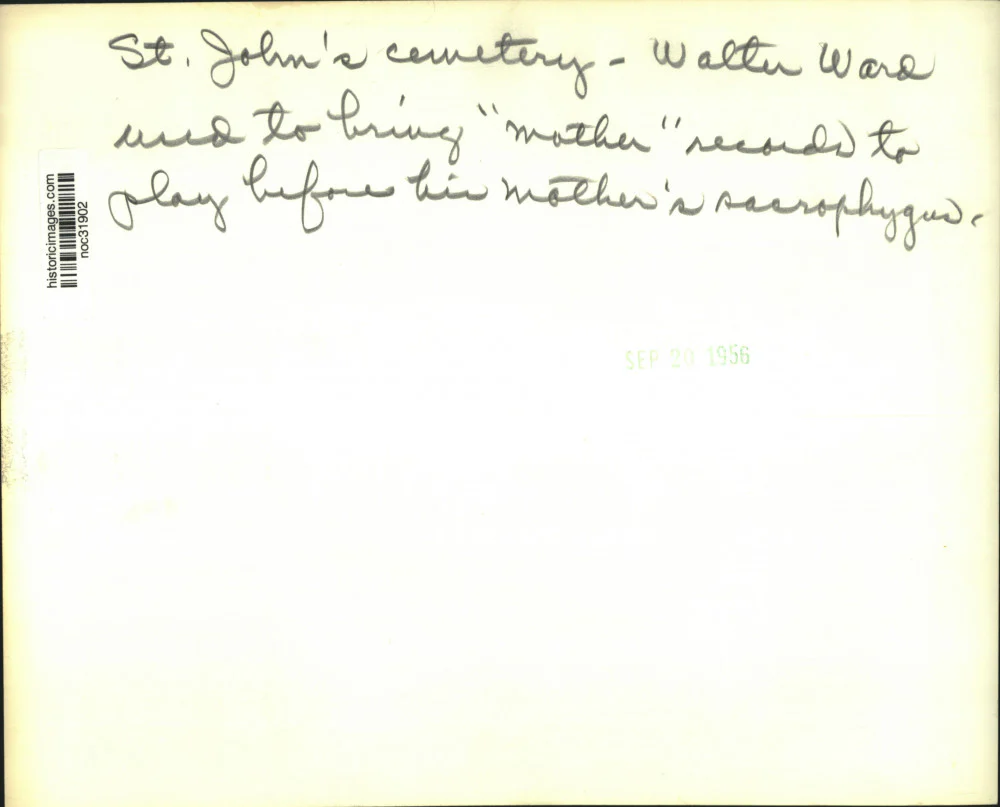 St. John's cemetery - Walter Ward
used to bring "mother" records to
play before his mother's sacrophygus.
historicimages.com
noc31902
SEP 20 1956